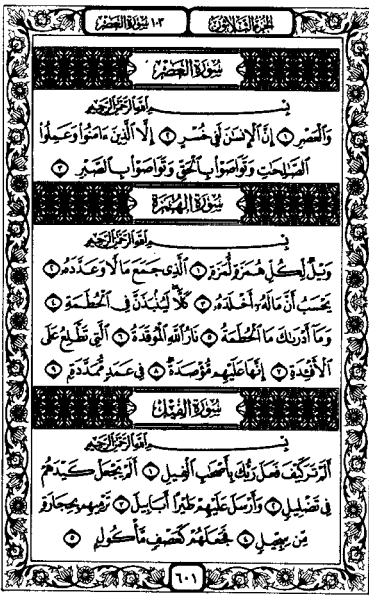 الجُزْءُ الثَّلَاثُونَ
١٠٣ سُورَةُ العَصْرِ
سُورَةُ العَصْرِ
بِسْمِ اللَّهِ الرَّحْمَٰنِ الرَّحِيمِ
وَالْعَصْرِ ١ إِنَّ الْإِنسَٰنَ لَفِى خُسْرٍ ٢ إِلَّا الَّذِينَ ءَامَنُوا وَعَمِلُوا
الصَّٰلِحَٰتِ وَتَوَاصَوْا بِالْحَقِّ وَتَوَاصَوْا بِالصَّبْرِ ٣
سُورَةُ الهُمَزَةِ
بِسْمِ اللَّهِ الرَّحْمَٰنِ الرَّحِيمِ
وَيْلٌ لِّكُلِّ هُمَزَةٍ لُّمَزَةٍ ١ الَّذِى جَمَعَ مَالًا وَعَدَّدَهُۥ ٢
يَحْسَبُ أَنَّ مَالَهُۥٓ أَخْلَدَهُۥ ٣ كَلَّا لَيُنۢبَذَنَّ فِى الْحُطَمَةِ ٤
وَمَآ أَدْرَىٰكَ مَا الْحُطَمَةُ ٥ نَارُ اللَّهِ الْمُوقَدَةُ ٦ الَّتِى تَطَّلِعُ عَلَى
الْأَفْـِٔدَةِ ٧ إِنَّهَا عَلَيْهِم مُّؤْصَدَةٌ ٨ فِى عَمَدٍ مُّمَدَّدَةٍۭ ٩
سُورَةُ الفِيلِ
بِسْمِ اللَّهِ الرَّحْمَٰنِ الرَّحِيمِ
أَلَمْ تَرَ كَيْفَ فَعَلَ رَبُّكَ بِأَصْحَٰبِ الْفِيلِ ١ أَلَمْ يَجْعَلْ كَيْدَهُمْ
فِى تَضْلِيلٍ ٢ وَأَرْسَلَ عَلَيْهِمْ طَيْرًا أَبَابِيلَ ٣ تَرْمِيهِم بِحِجَارَةٍ
مِّن سِجِّيلٍ ٤ فَجَعَلَهُمْ كَعَصْفٍ مَّأْكُولٍۭ ٥
٦٠١